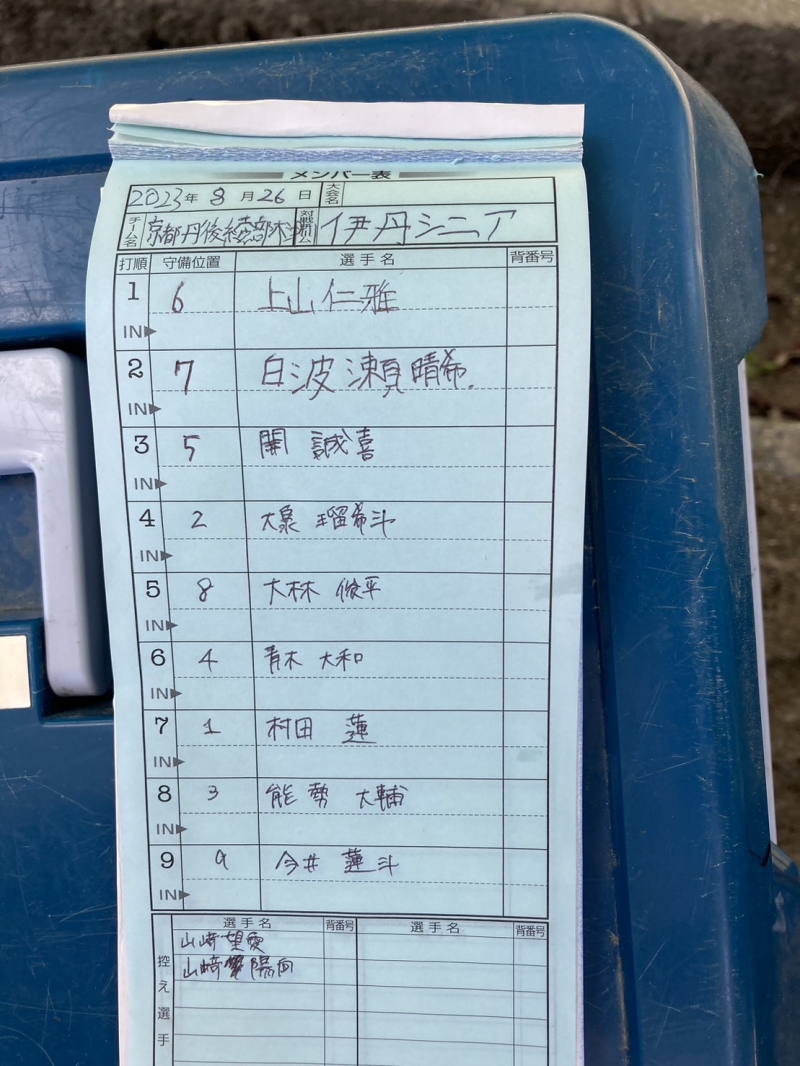 メンバー表
2023年 8月26日 大会名
チーム名 京都丹後綾部木津 対戦チーム 伊丹シニア
打順 守備位置 選手名 背番号
1 6 上山仁雅
IN▶
2 7 白波瀬晴希
IN▶
3 5 開 誠喜
IN▶
4 2 大泉 瑠希斗
IN▶
5 8 大林 俊平
IN▶
6 4 青木 大和
IN▶
7 1 村田 蓮
IN▶
8 3 能勢 大輔
IN▶
9 9 今井 蓮斗
IN▶
控え選手
選手名 背番号 選手名 背番号
山崎望愛
山崎 陽向